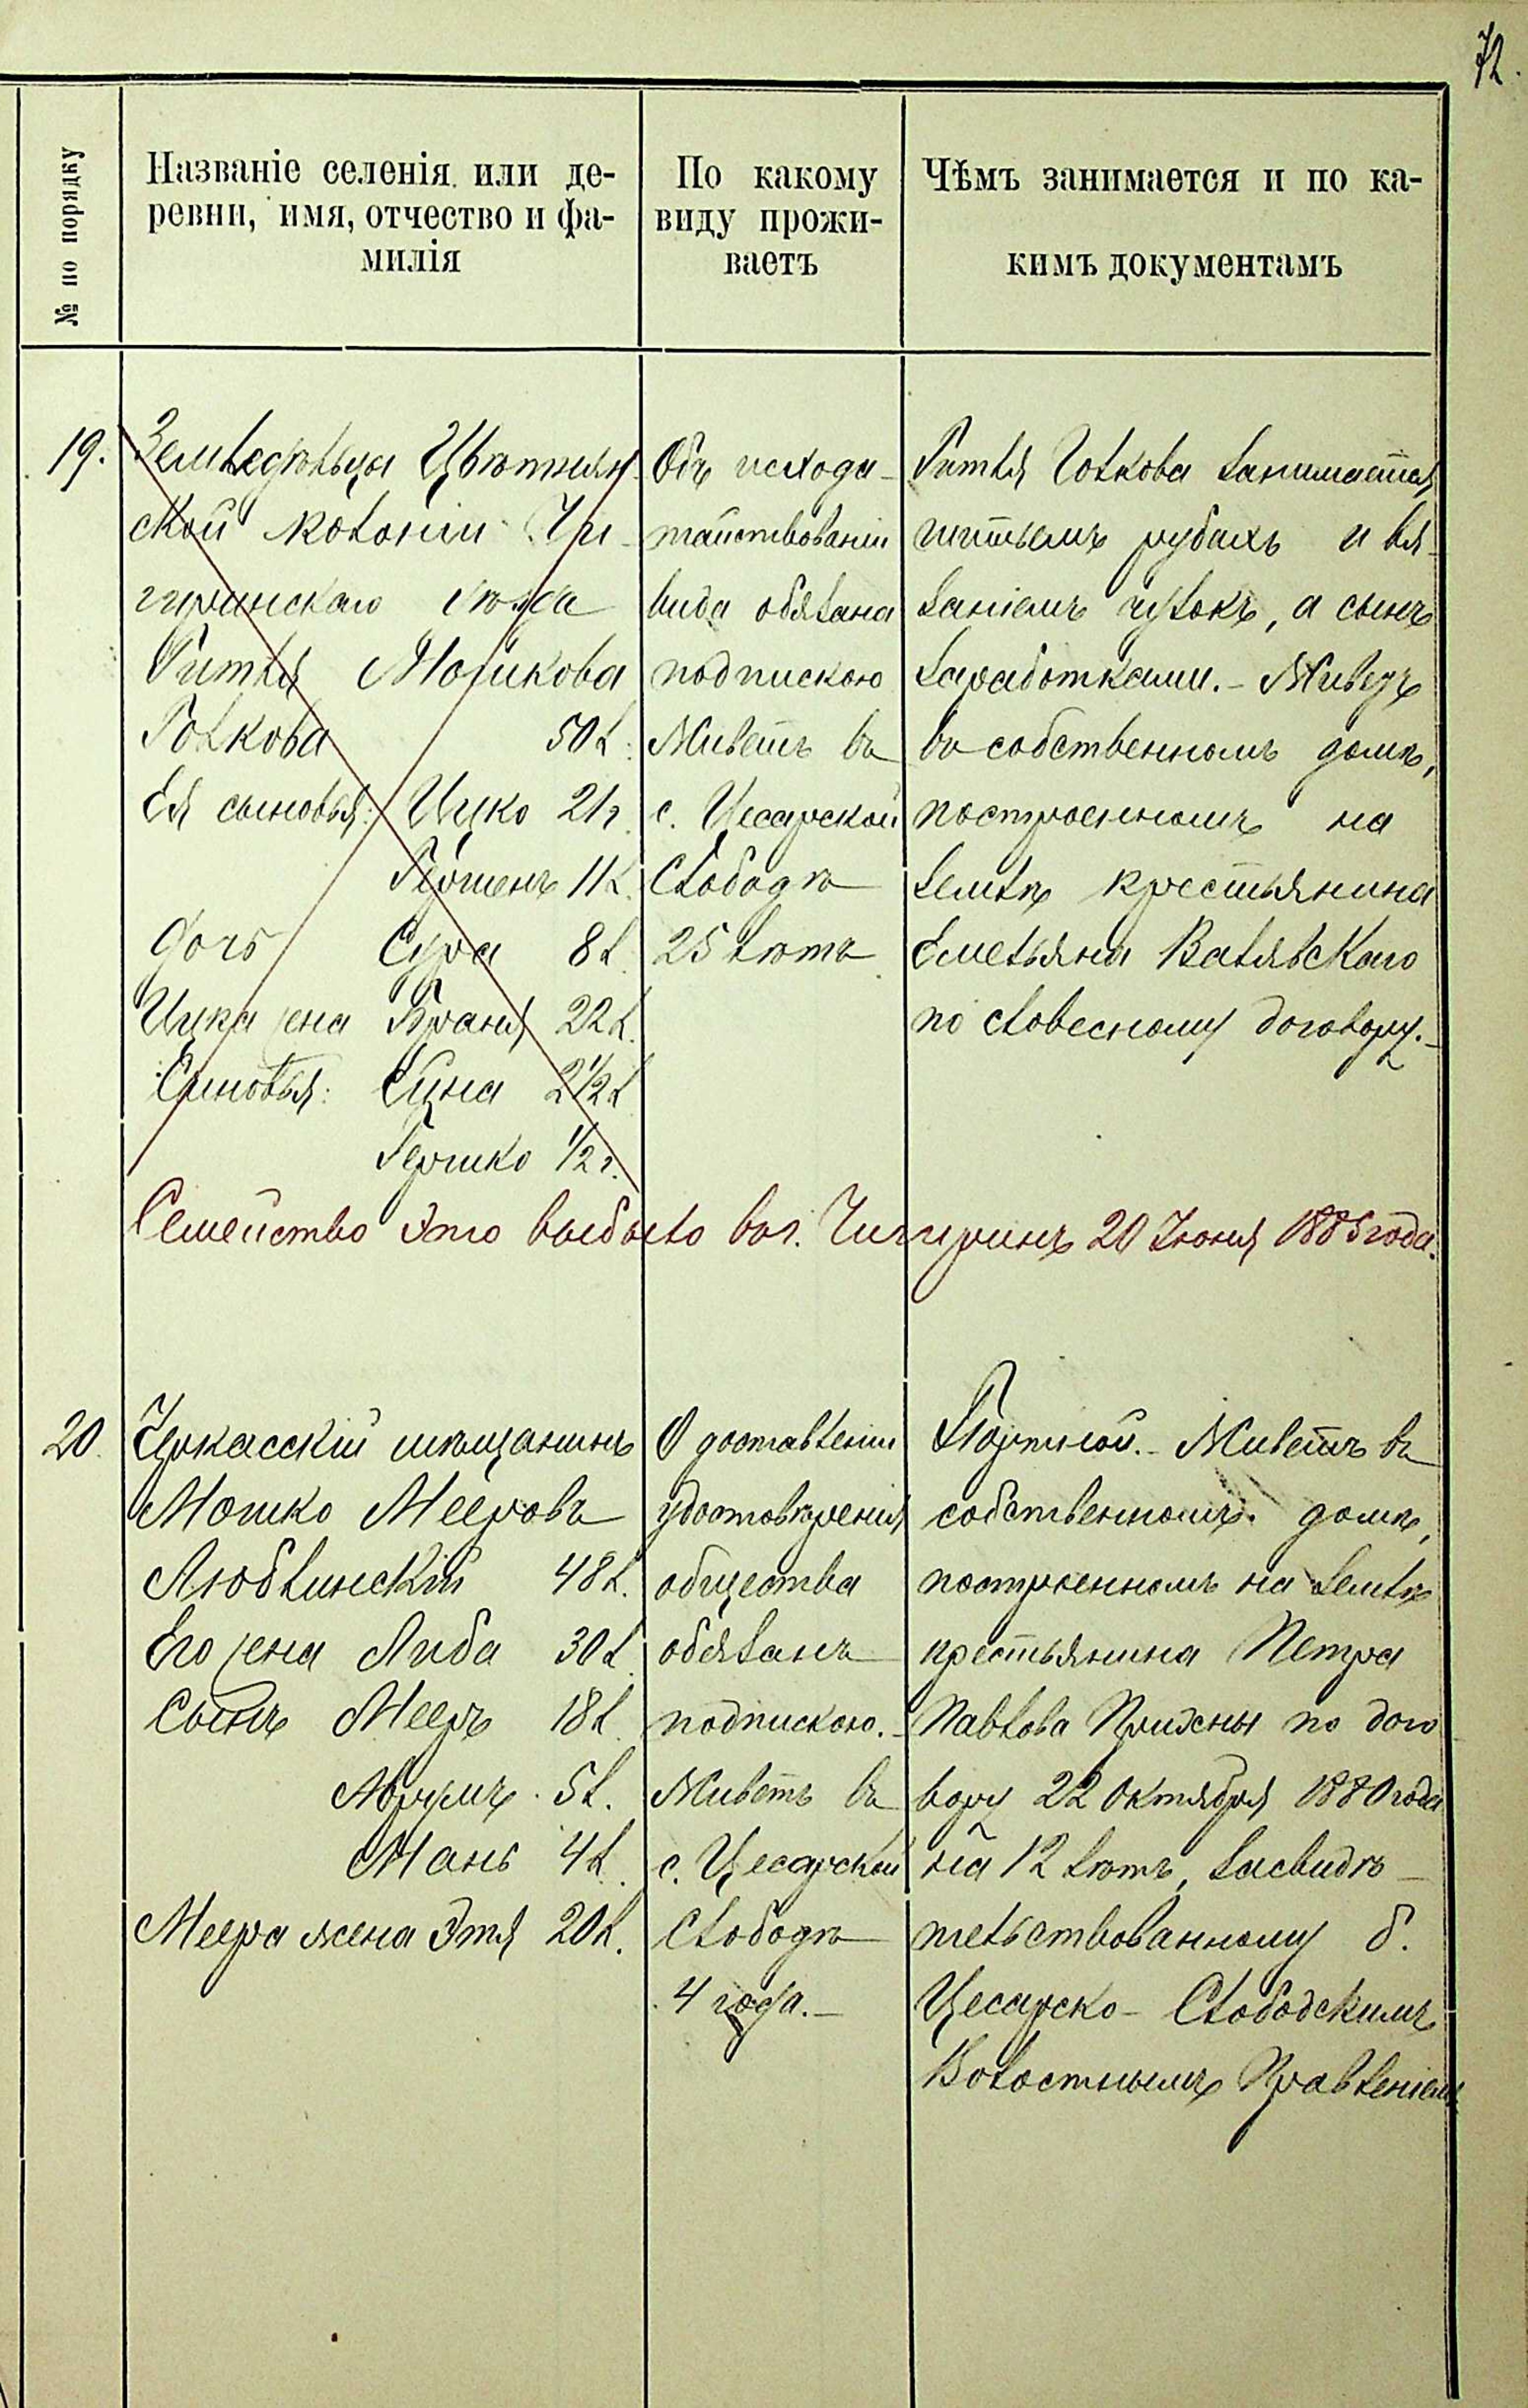 72.
№ по порядку
Названіе селенія или де-
ревни, имя, отчество и фа-
милія
По какому
виду прожи-
ваетъ
Чѣмъ занимается и по ка-
кимъ документамъ
19.
Земледѣльца Цвѣтнян-
ской колоніи Чи-
гиринскаго уѣзда
Гитля Мошкова
Голкова 50 л.
Ея сыновья: Ицко 21 г.
Гершенъ 11 л.
Дочь Сура 8 л.
Ицка жена Браня 22 л.
Сыновья: 2½ л.
Гершко ½ г.
Объ исхода-
тайствованіи
вида обязана
подпискою
Живетъ въ
с. Цесарской
Слободѣ
25 лѣтъ
Гитля Голкова занимается
шитьемъ рубахъ и вя-
заніемъ чулокъ, а сынъ
заработками. – Живетъ
въ собственномъ домѣ,
построенномъ на
землѣ крестьянина
Емельяна Валявскаго
по словесному договору. –
Семейство это выбыло въ г. Чигиринъ 20 Іюня 1885 года.
20.
Черкасскій мѣщанинъ
Мошко Мееровъ
Люблинскій 48 л.
Его жена Либа 30 л.
Сынъ Мееръ 18 л.
Аврумъ 5 л.
Мань 4 л.
Меера жена Этя 20 л.
О доставленіи
удостовѣренія
общества
обязанъ
подпискою. –
Живетъ въ
с. Цесарской
Слободѣ
4 года. –
Портной. – Живетъ въ
собственномъ домѣ,
построенномъ на землѣ
крестьянина Петра
Павлова по дого
вору 22 Октября 1880 года
на 12 лѣтъ, засвидѣ-
тельствованному б.
Цесарско-Слободскимъ
Волостнымъ Правленіемъ